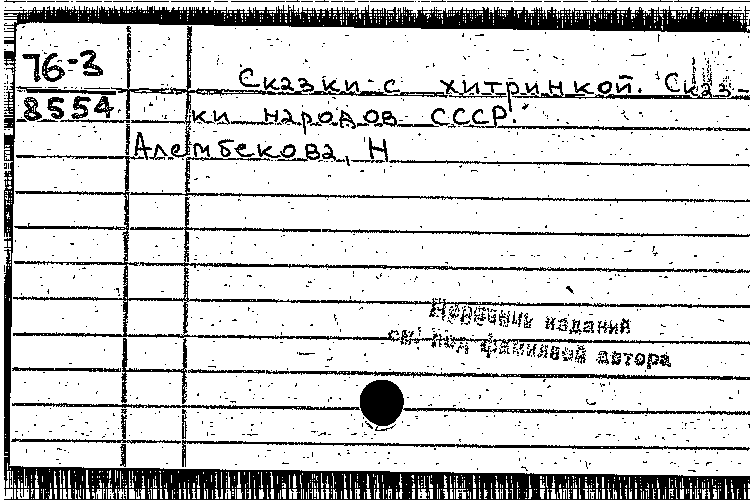 76-3
8554
Сказки с хитринкой. Сказ-
ки народов СССР.
Алембекова, Н
Перечень изданий
см. под фамилией автора